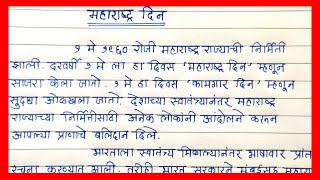 महाराष्ट्र दिन
१ मे १९६० रोजी महाराष्ट्र राज्याची निर्मिती
झाली. दरवर्षी १ मे ला हा दिवस 'महाराष्ट्र दिन' म्हणून
साजरा केला जातो. १ मे हा दिवस 'कामगार दिन' म्हणून
सुद्धा ओळखला जातो. देशाच्या स्वातंत्र्यानंतर महाराष्ट्र
राज्याच्या निर्मितीसाठी अनेक लोकांनी आंदोलने करून
आपल्या प्राणाचे बलिदान दिले.
भारताला स्वातंत्र्य मिळाल्यानंतर भाषावार प्रांत
रचना करण्यात आली. तरीही भारत सरकारने मुंबईसह महारा